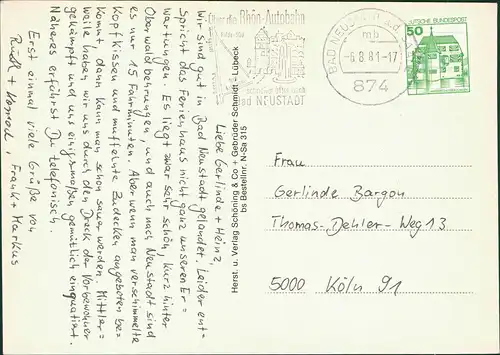 Liebe Gerlinde + Heinz,
Wir sind gut in Bad Neustadt gelandet. Leider ent-
spricht das Ferienhaus nicht ganz unseren Er-
wartungen. Es liegt zwar sehr schön, kurz hinter
und auch nach Neustadt sind
es nur 15 Fahrminuten. Aber wenn man verschimmelte
Kopfkissen und muffelnde Zudecken angeboten be-
kommt dann kann man schon sauer werden. Mittler-
weile haben wir uns durch den Dreck der Vorbewohner
gekämpft und uns einigermaßen gemütlich einquartiert.
Näheres erfährst Du telefonisch.
Erst einmal viele Grüße von
Frank + Markus
Herst. Verlag Schöning & Co + Gebrüder Schmidt - Lübeck
bs Bestellnr. N-Sa 315
Über die Rhön-Autobahn
Bad NEUSTADT
BAD NEUSTADT a.d.
mb
-6.8.81-17
874
DEUTSCHE BUNDESPOST
50
Frau
Gerlinde Bargon
Thomas-Dehler-Weg 13
5000 Köln 91